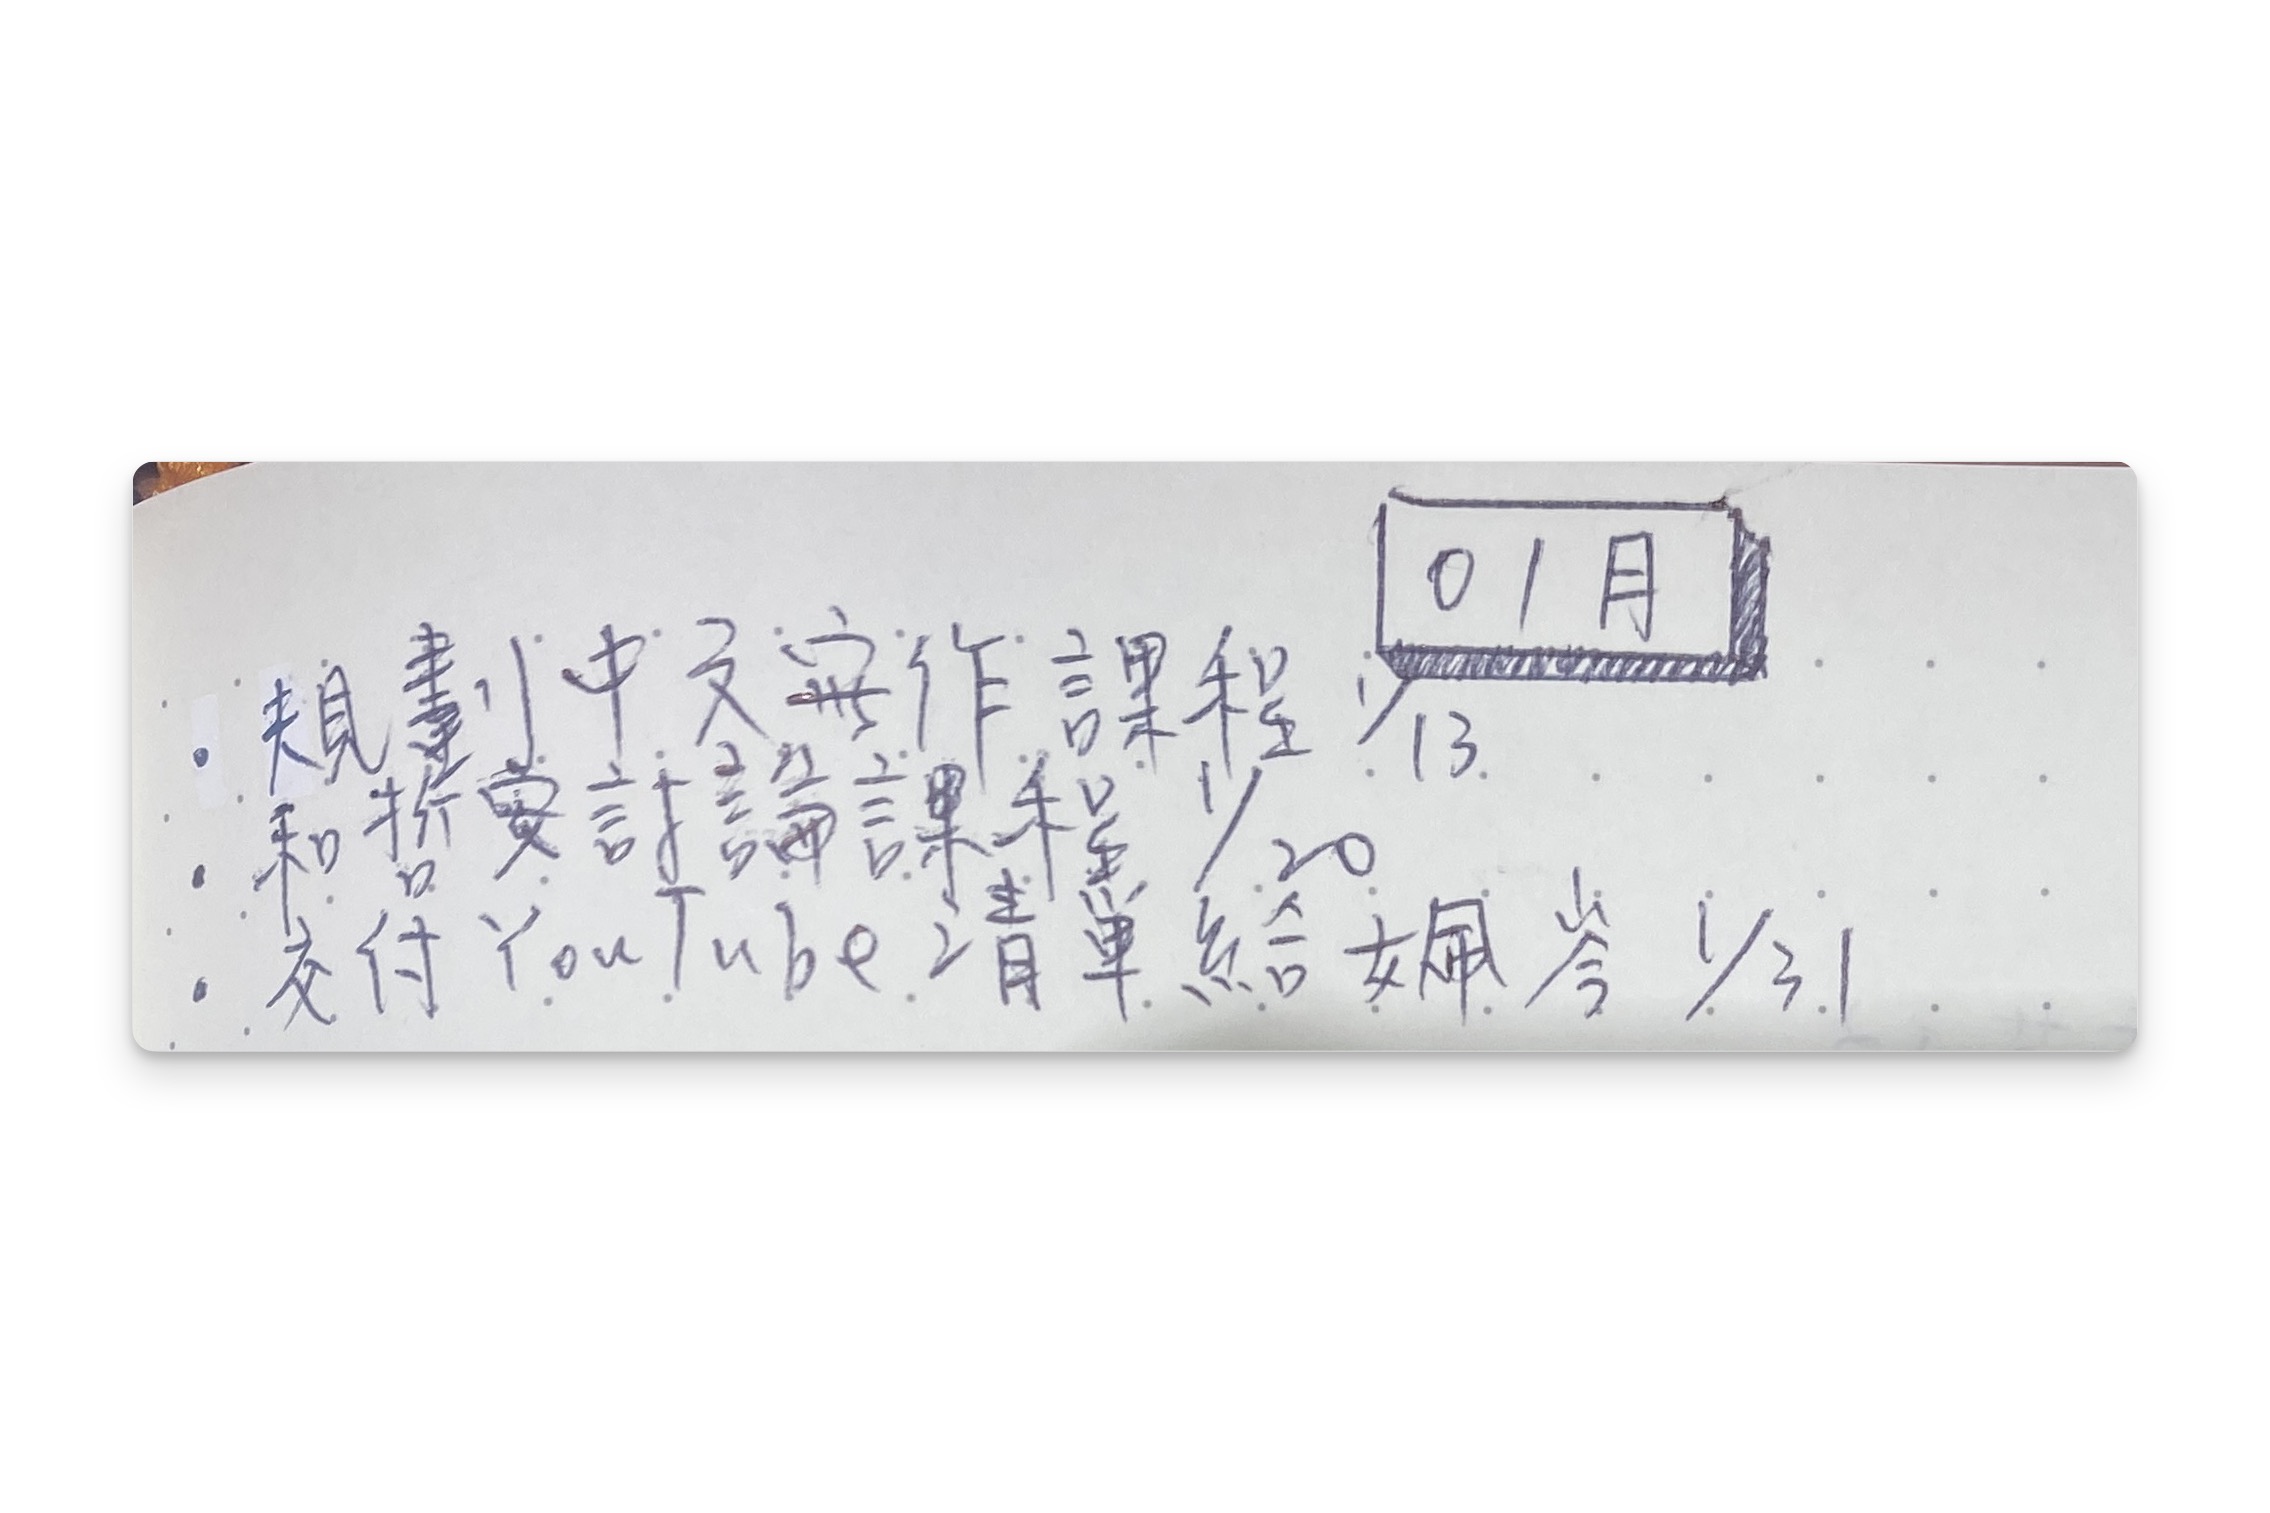 01月
• 規劃中文寫作課程 1/13
• 和哲安討論課程 1/20
• 交付YouTube清單給姵岑 1/31